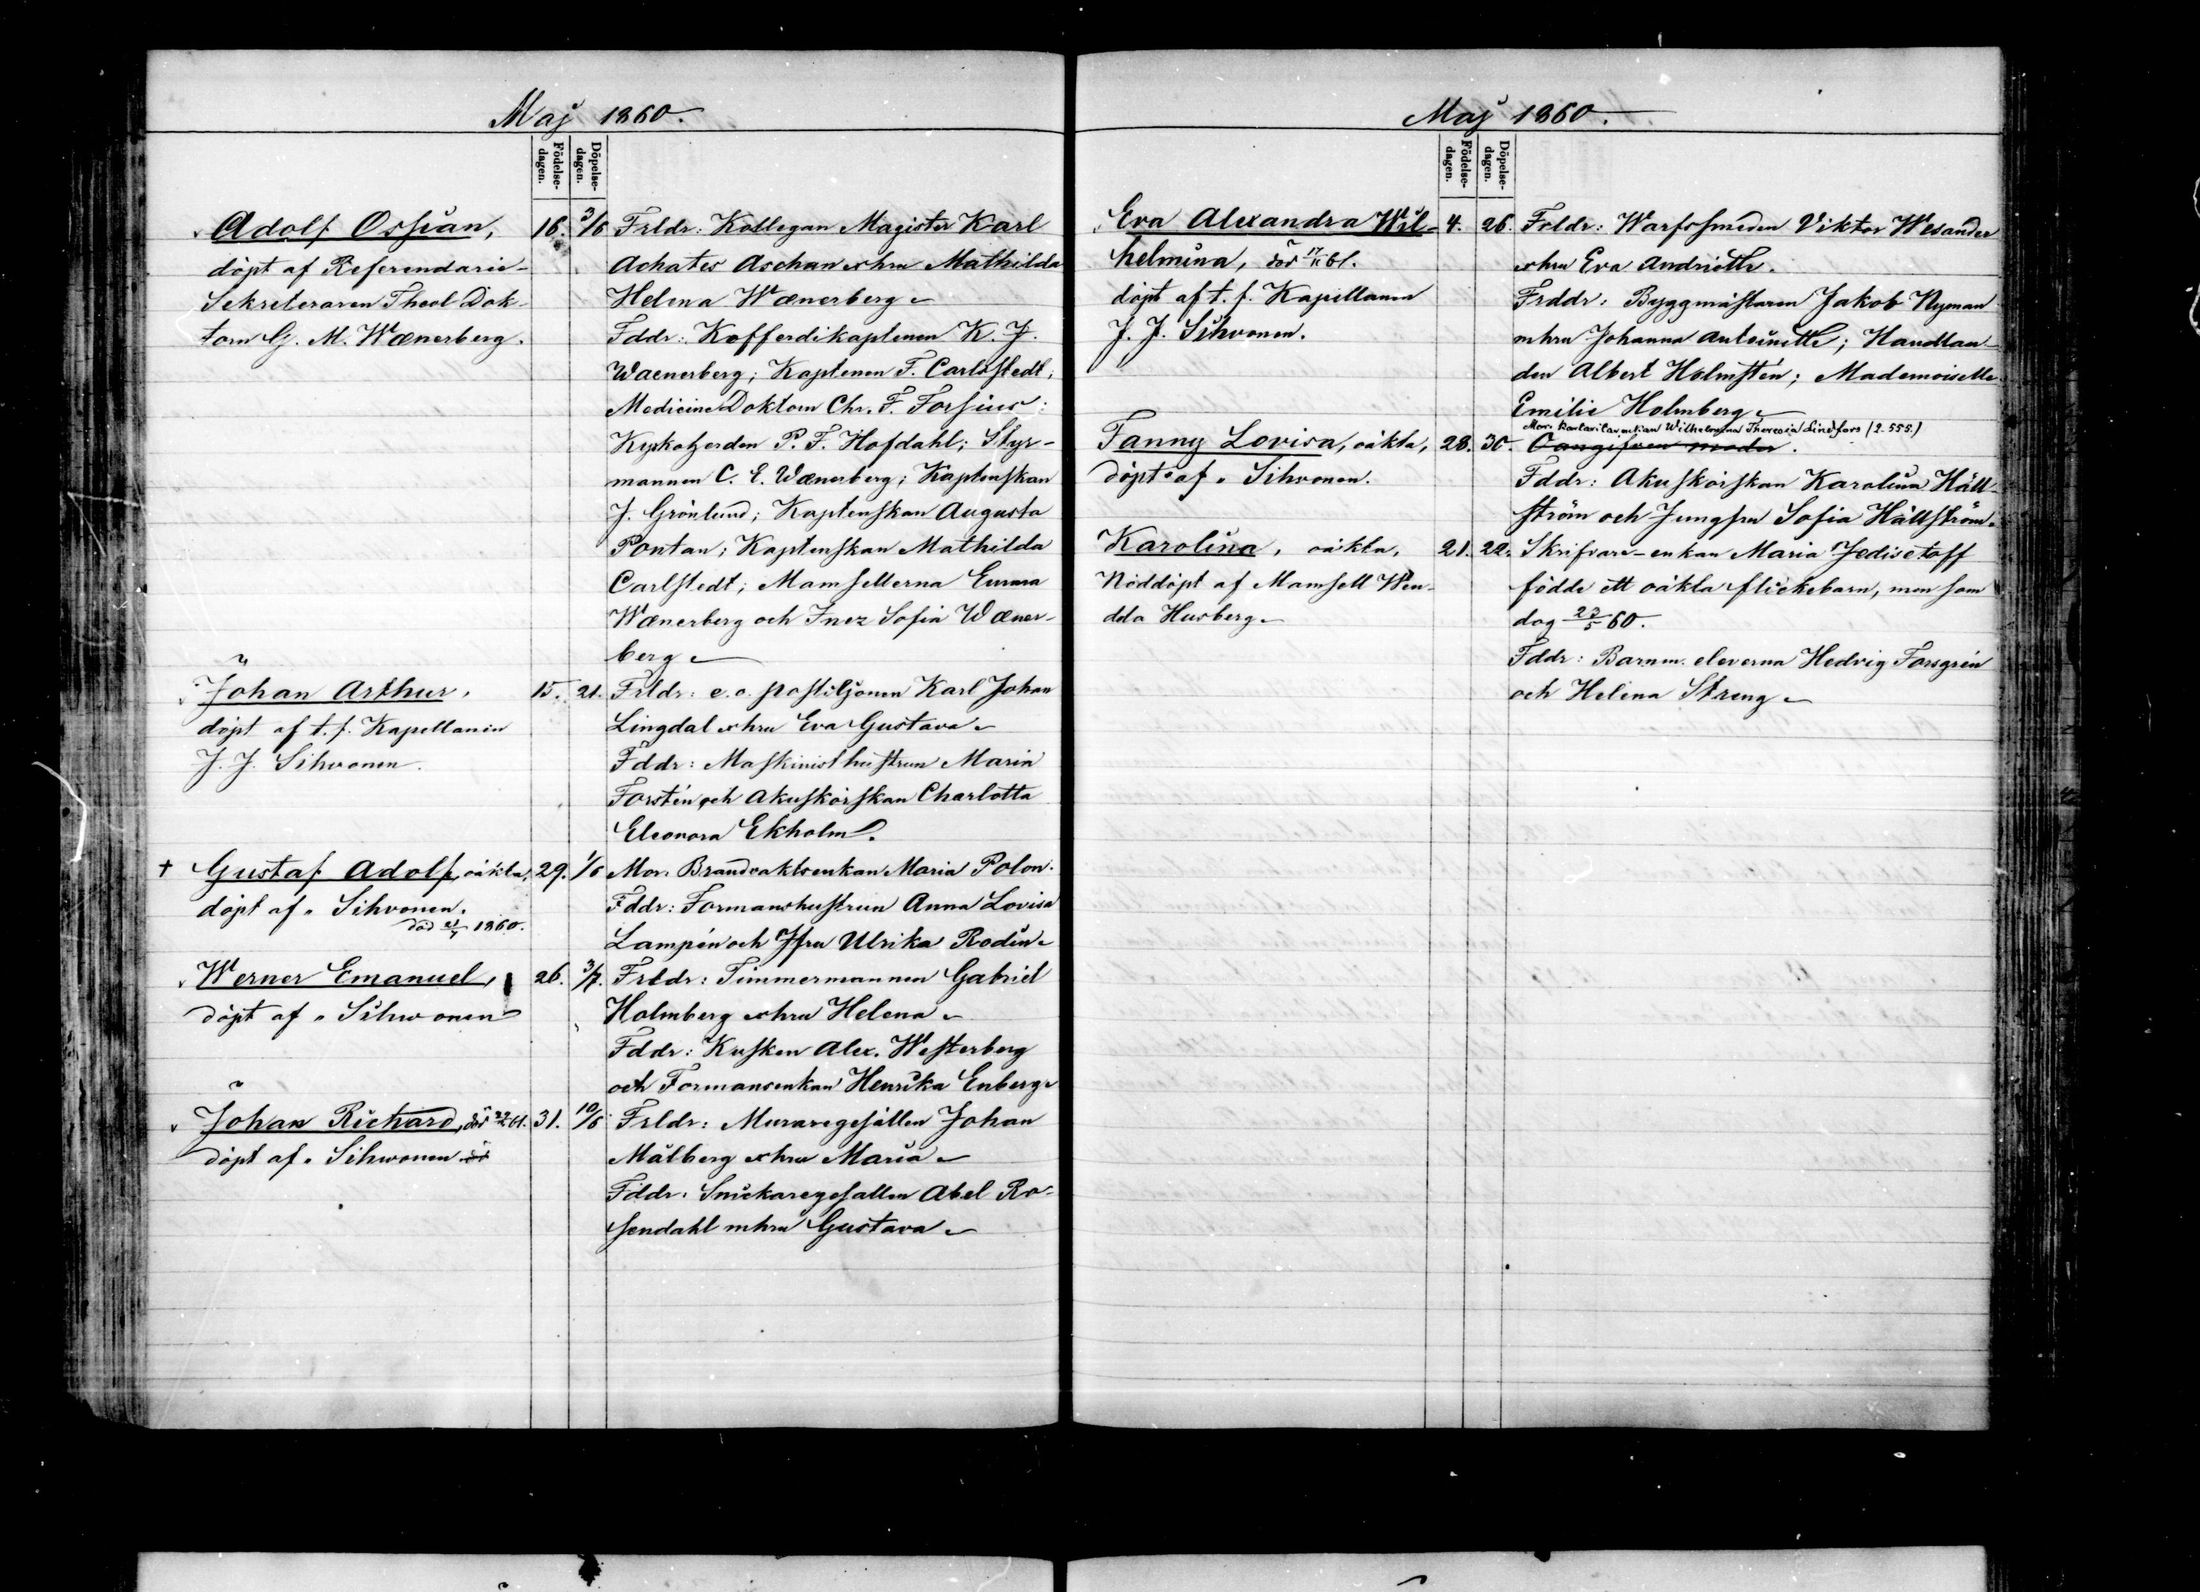 Maj 1860.
Födelse-
dagen.
Döpelse-
dagen.
Adolf Ossian,
döpt af Referendarie-
Sekreteraren Theol. Dok-
torn G. M. Wænerberg.
16.
3/6
Frldr: Kollegan Magister Karl
Achates Aschan o hru Mathilda
Helena Wænerberg
Fddr: Kofferdikaptenen K. J.
Waenerberg; Kaptenen F. Carlstedt;
Medicine Doktorn Chr. F. Forsius;
Kyrkoherden P. F. Hofdahl; Styr-
mannen C. E. Wænerberg; Kaptenskan
J. Grönlund; Kaptenskan Augusta
Pontan; Kaptenskan Mathilda
Carlstedt; Mamsellerna Emma
Wænerberg och Inez Sofia Wæner-
berg
Johan Arthur,
döpt af t. f. Kapellanen
J. J. Sihvonen.
15.
21.
Frldr: e. o. postiljonen Karl Johan
Lingdal o hru Eva Gustava
Fddr: Maskinisthustrun Maria
Forstén och Akuskörskan Charlotta
Eleonora Ekholm.
† Gustaf Adolf, oäkta,
döpt af „ Sihvonen.
död 21/7 1860.
29.
1/6
Mor: Brandvaktsenkan Maria Polon.
Fddr: Formanshustrun Anna Lovisa
Lampén och Jfru Ulrika Rodin
Werner Emanuel,
döpt af „ Sihvonen
26.
3/7.
Frldr: Timmermannen Gabriel
Holmberg o hru Helena
Fddr: Kusken Alex. Westerberg
och Formansenkan Henrika Enberg
Johan Richard, död 22/2 61.
döpt af „ Sihvonen
31.
10/6
Frldr: Muraregesällen Johan
Målberg o hru Maria
Fddr: Snickaregesällen Abel Ro-
sendahl mhru Gustava
Maj 1860.
Födelse-
dagen.
Döpelse-
dagen.
Eva Alexandra Wil-
helmina, död 17/11 61.
döpt af t. f. Kapellanen
J. J. Sihvonen.
4.
26.
Frldr: Warfssmeden Viktor Wesander
o hru Eva Andriette.
Frddr: Byggmästaren Jakob Nyman
mhru Johanna Antoinette; Handlan-
den Albert Holmstén; Mademoiselle
Emilie Holmberg
Fanny Lovisa, oäkta,
döpt af „ Sihvonen.
28.
30.
Mor: Wilhelmina Theresia Lindfors (2. 555.)
Oangifven moder.
Fddr: Akuskörskan Karolina Häll-
ström och Jungfru Sofia Hällström
Karolina, oäkta,
Nöddöpt af Mamsell Wen-
dla Husberg
21.
22.
Skrifvare-enkan Maria Jedisetoff
födde ett oäkta flickebarn, men som
dog 23/5 60.
Fddr: Barnm. eleverna Hedvig Forsgrén
och Helena Streng